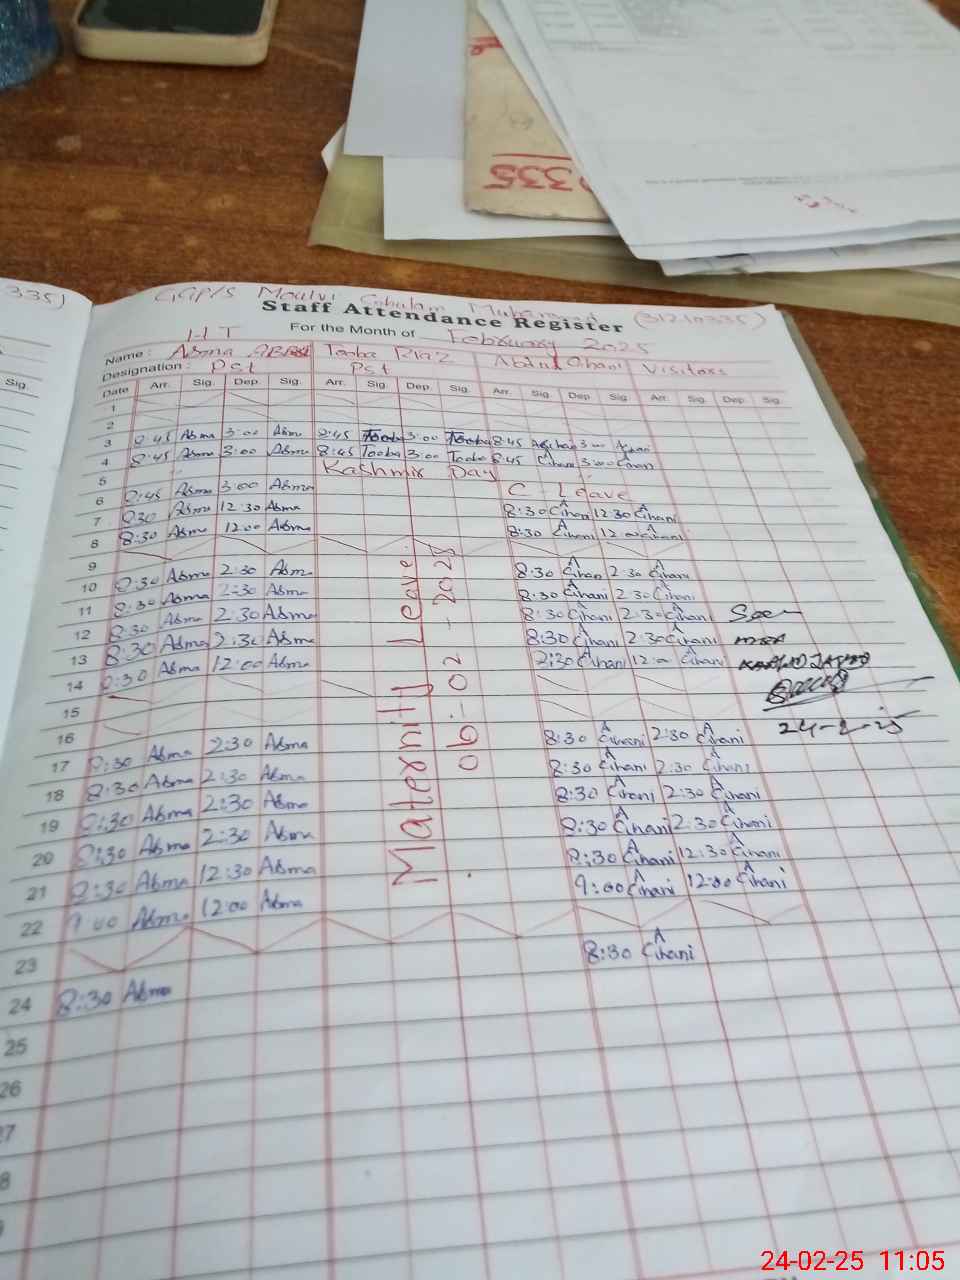 335
335)
GGP/S Moulvi Ghulam Muhammad (31210335)
Staff Attendance Register
For the Month of February 2025
HT
Name: Asma ABBAS Tooba Riaz Abdul Ghani Visitors
Designation: Pst Pst
Sig. Date Arr. Sig. Dep. Sig. Arr. Sig. Dep. Sig. Arr. Sig. Dep. Sig. Arr. Sig. Dep. Sig.
1
2
3 8:45 Asma 3:00 Asma 8:45 Tooba 3:00 Tooba 8:45 AGhani 3:00 AGhani
4 8:45 Asma 3:00 Asma 8:45 Tooba 3:00 Tooba 8:45 Ghani 3:00 Ghani
5 Kashmir Day
6 8:45 Asma 3:00 Asma C- Leave
7 8:30 Asma 12:30 Asma 8:30 AGhani 12:30 AGhani
8 8:30 Asma 12:00 Asma 8:30 AGhani 12:00 AGhani
9
10 8:30 Asma 2:30 Asma 8:30 AGhani 2:30 AGhani
11 8:30 Asma 2:30 Asma 8:30 AGhani 2:30 AGhani
12 8:30 Asma 2:30 Asma 8:30 AGhani 2:30 AGhani Seen
13 8:30 Asma 2:30 Asma 8:30 AGhani 2:30 AGhani
14 8:30 Asma 12:00 Asma 8:30 AGhani 12:00 AGhani
15
16
24-2-25
17 8:30 Asma 2:30 Asma 8:30 AGhani 2:30 AGhani
18 8:30 Asma 2:30 Asma 8:30 AGhani 2:30 AGhani
19 8:30 Asma 2:30 Asma 8:30 AGhani 2:30 AGhani
20 8:30 Asma 2:30 Asma 8:30 AGhani 2:30 AGhani
21 8:30 Asma 12:30 Asma 8:30 AGhani 12:30 AGhani
22 9:00 Asma 12:00 Asma 9:00 AGhani 12:00 AGhani
23
24 8:30 Asma 8:30 AGhani
25
26
27
8
Maternity Leave.
06-02-2025
24-02-25 11:05